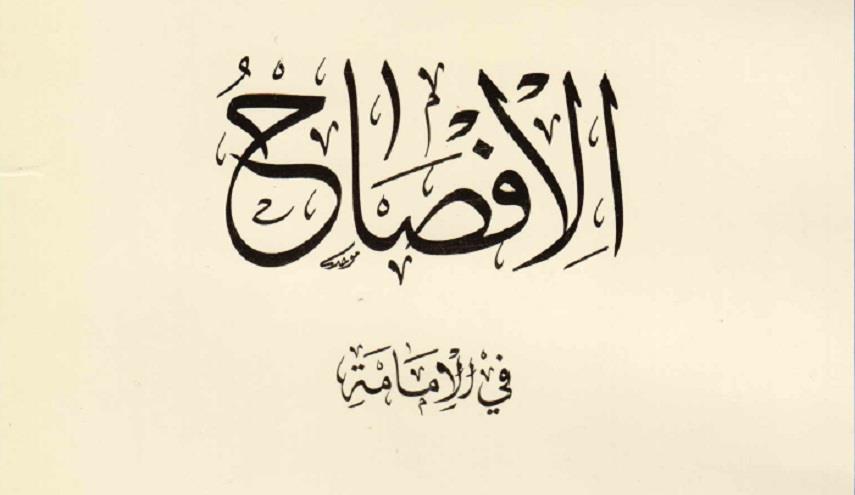 الْإِفْصَاحُ
فِي الْإِمَامَةِ